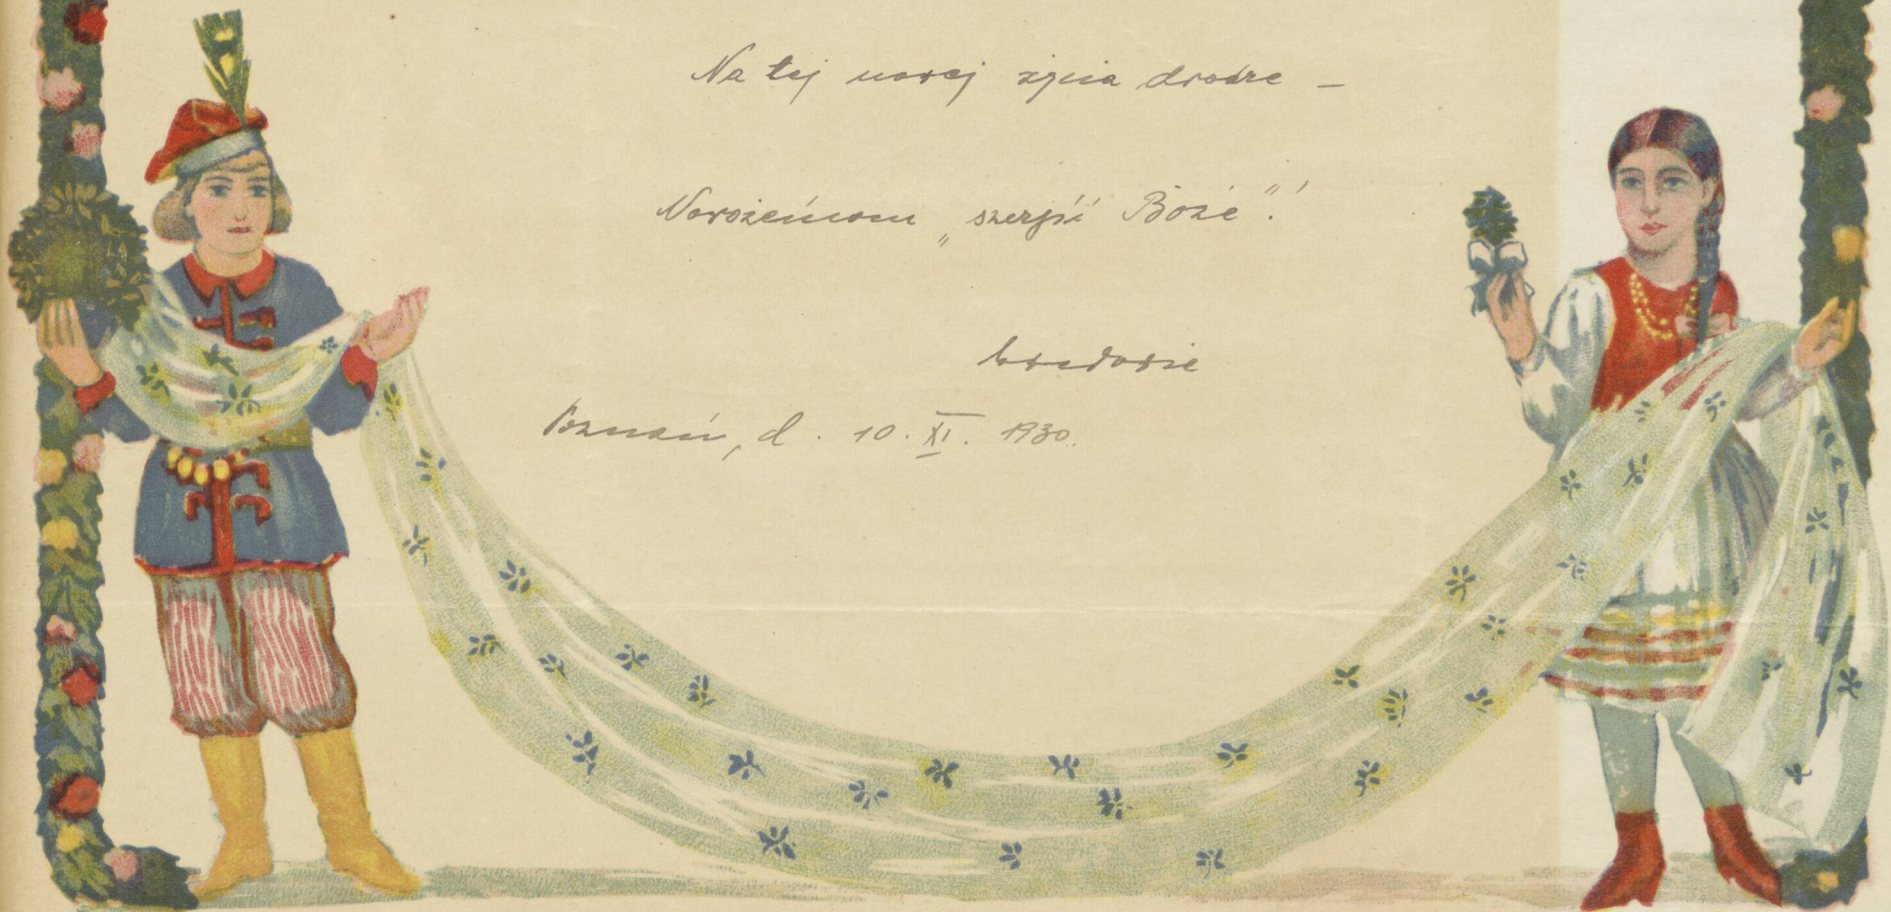 Na tej nowej życia drodze –
Nowożeńcom „szczęść Boże”!
Poznań, d. 10. XI. 1930.